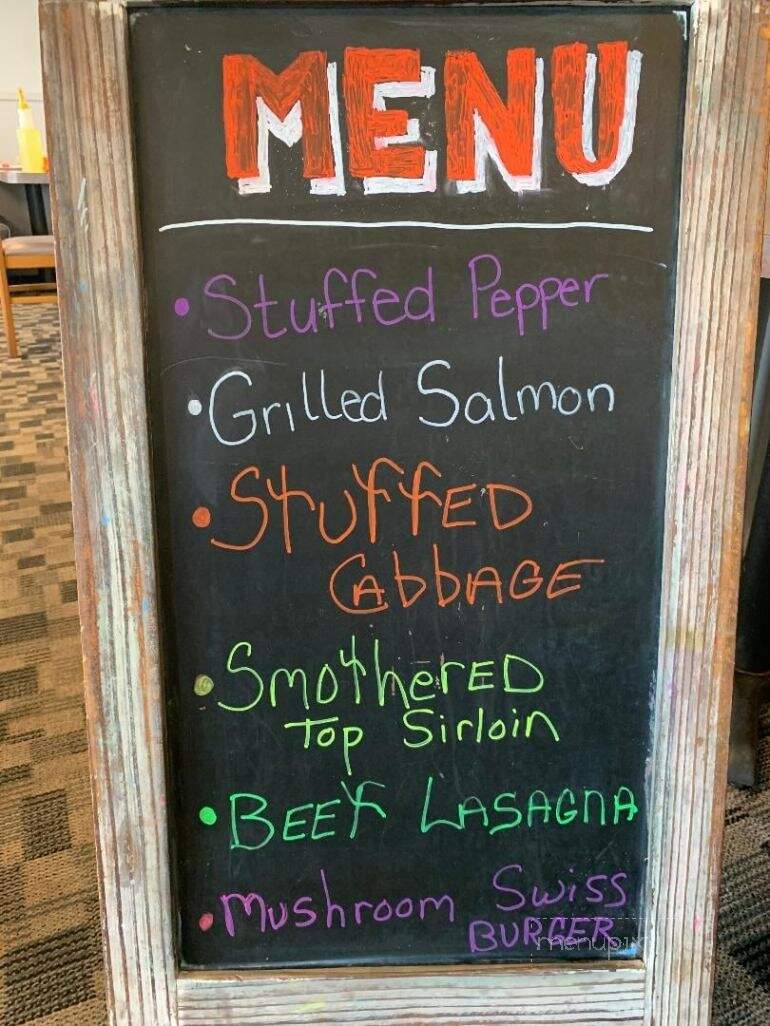 MENU
• Stuffed Pepper
• Grilled Salmon
• Stuffed
Cabbage
• Smothered
Top Sirloin
• Beef Lasagna
• Mushroom Swiss
Burger
menupix